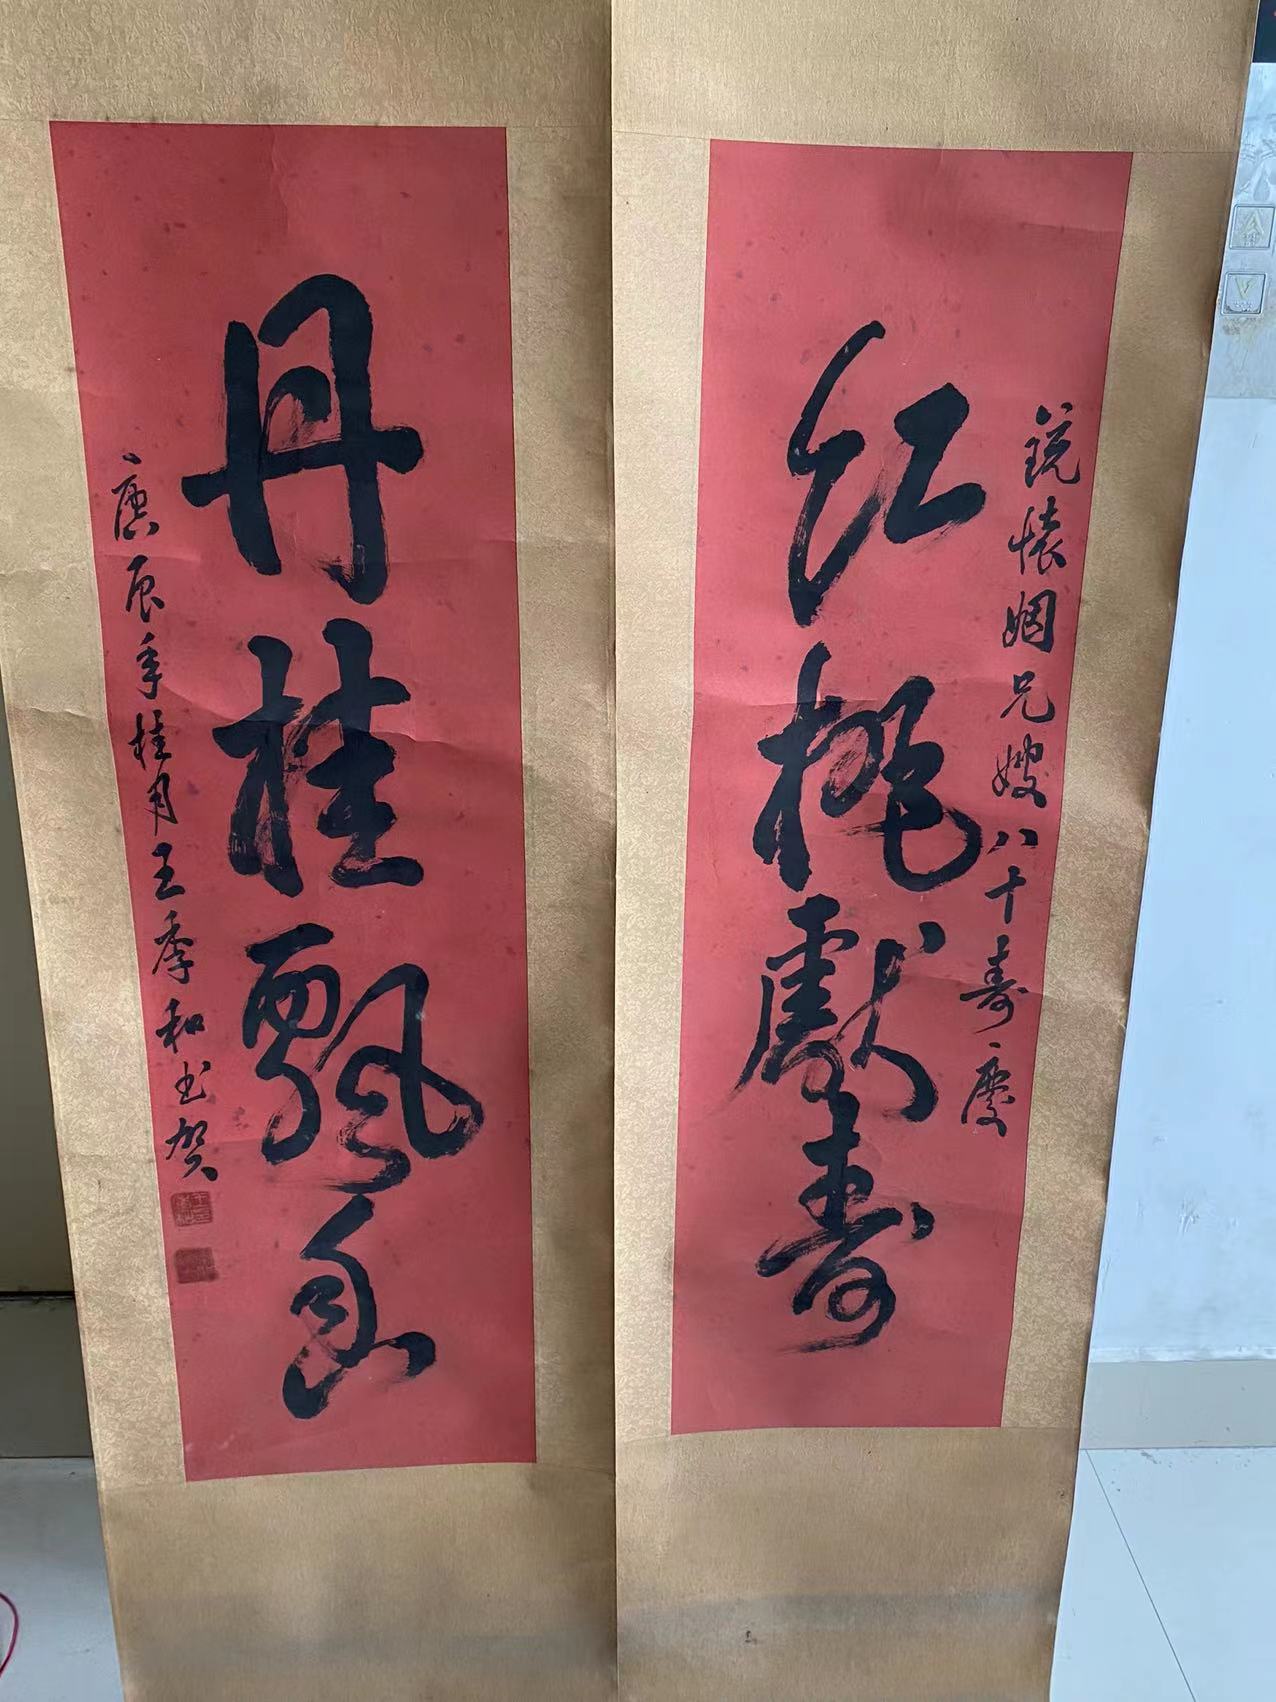 锐怀姻兄嫂八十寿庆
红桃献寿
丹桂飘香
庚辰年桂月王季和书贺